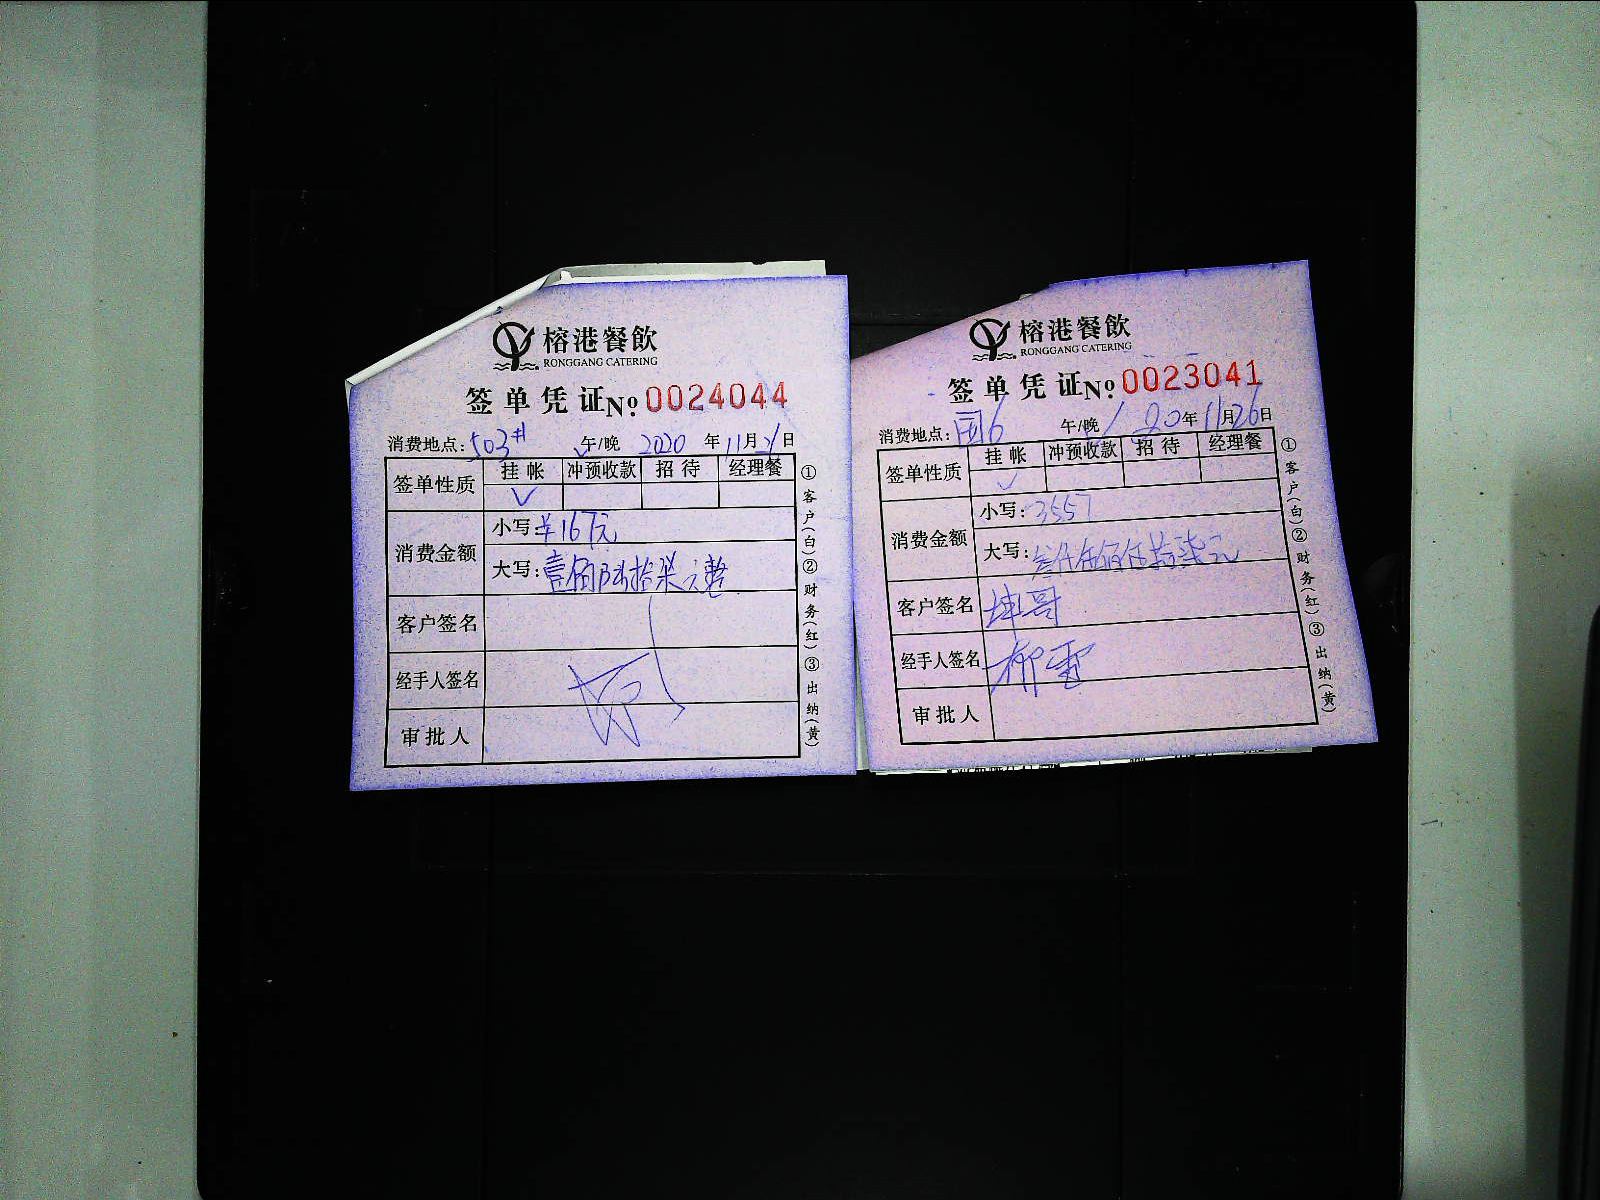 榕港餐飲
RONGGANG CATERING
签单凭证 No 0024044
消费地点: 503# 午/晚 2020 年 11 月 21 日
签单性质 挂帐 冲预收款 招待 经理餐
消费金额 小写: ¥167元
大写: 壹佰陆拾柒元整
客户签名
经手人签名
审批人
①客户(白)②财务(红)③出纳(黄)
榕港餐飲
RONGGANG CATERING
签单凭证 No 0023041
消费地点: 国6 午/晚 20 年 11 月 26 日
签单性质 挂帐 冲预收款 招待 经理餐
消费金额 小写: 3557
大写: 叁仟伍佰伍拾柒元
客户签名 坤哥
经手人签名 柳雪
审批人
①客户(白)②财务(红)③出纳(黄)